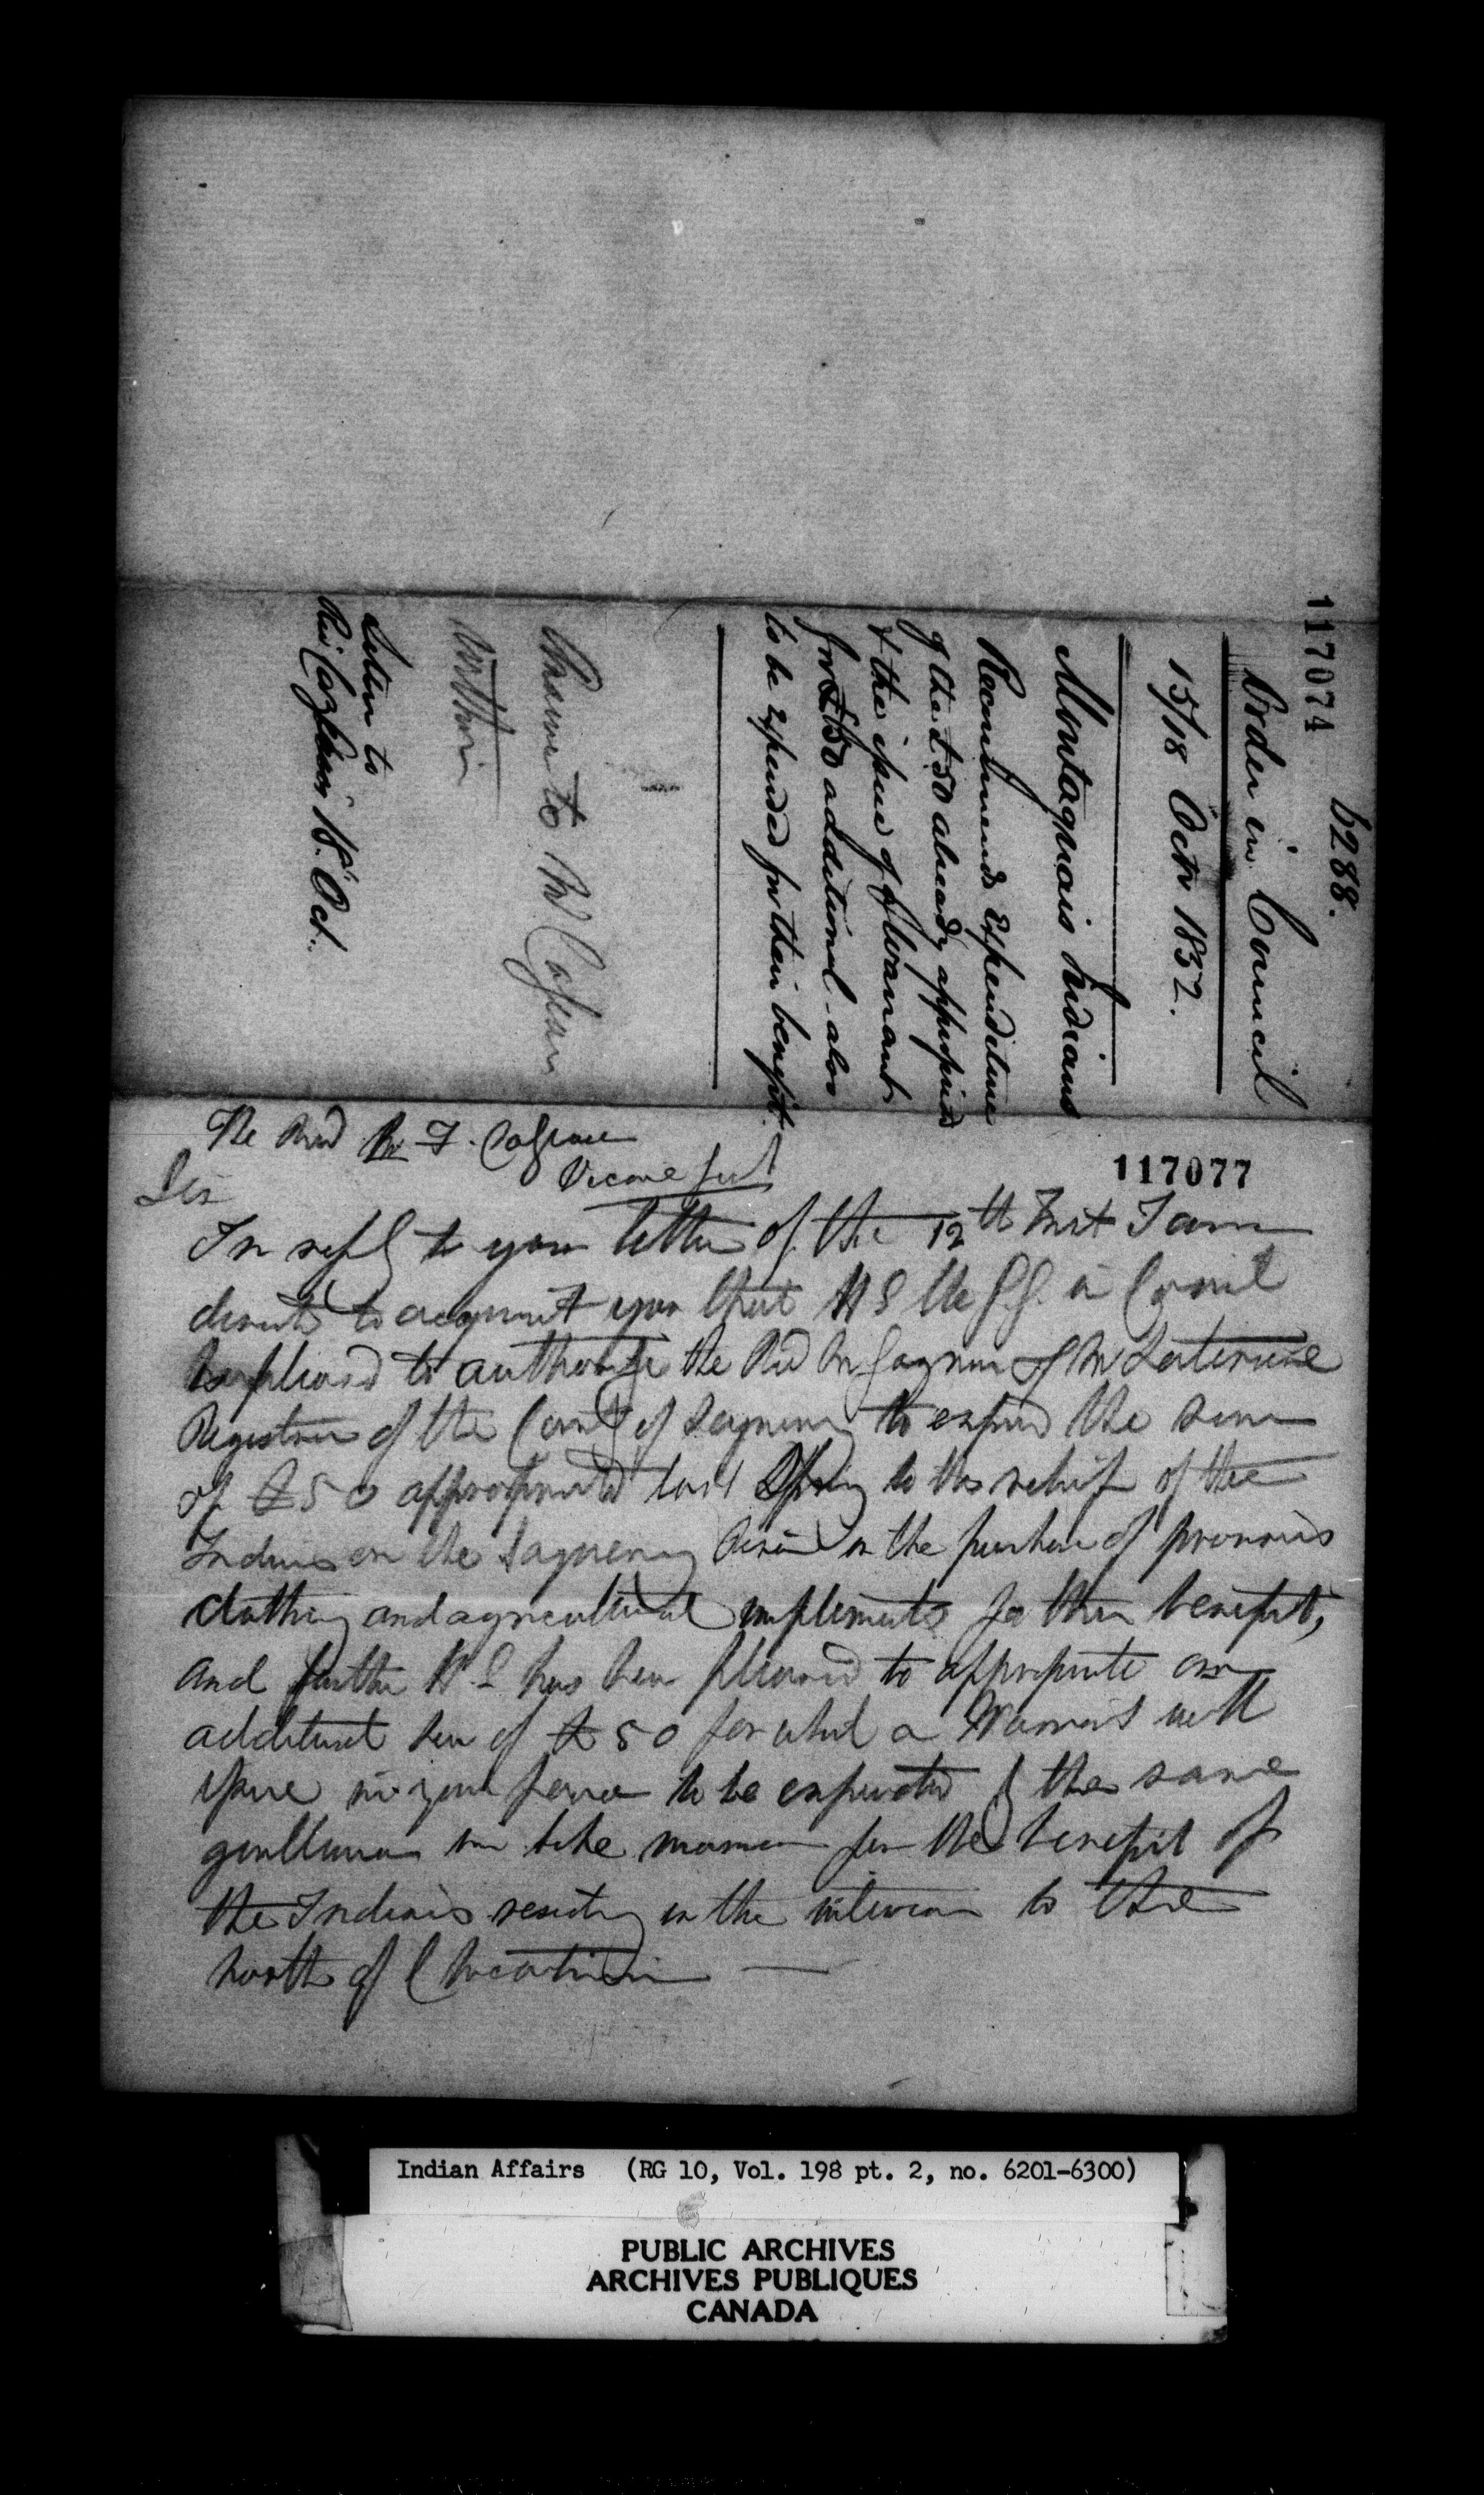 117074
6288.
Order in Council
15/18 Octr 1852.
Montagnais Indians
Recommends Expenditure
of the £50 already approprd
& the issue of Warrant
for £50 additional also
to be Expended for their benefit.
Answer to Mr Cazeau
written
Letter to
Rev Cazeau 18. Oct.
117077
The Revd Mr F. Cazeau
Vicaire Genl
Sir
In reply to your letter of the 12th Inst I am
directd to acquaint you that H E the G.G. in Council
is pleased to authorize the Revd Mr Gagnon & Mr Laterriere
Registrar of the County of Saguenay to expend the sum
of £50 appropriated last Spring to the relief of the
Indians on the Saguenay River in the purchase of provisions
clothing and agricultural implements for their benefit,
and further H.E has been pleased to appropriate an
additional sum of £50 for which a Warrant will
issue in your favor to be expended by the same
gentlemen in like manner for the benefit of
the Indians residing in the interior to the
north of Chicoutimi —
Indian Affairs (RG 10, Vol. 198 pt. 2, no. 6201-6300)
PUBLIC ARCHIVES
ARCHIVES PUBLIQUES
CANADA